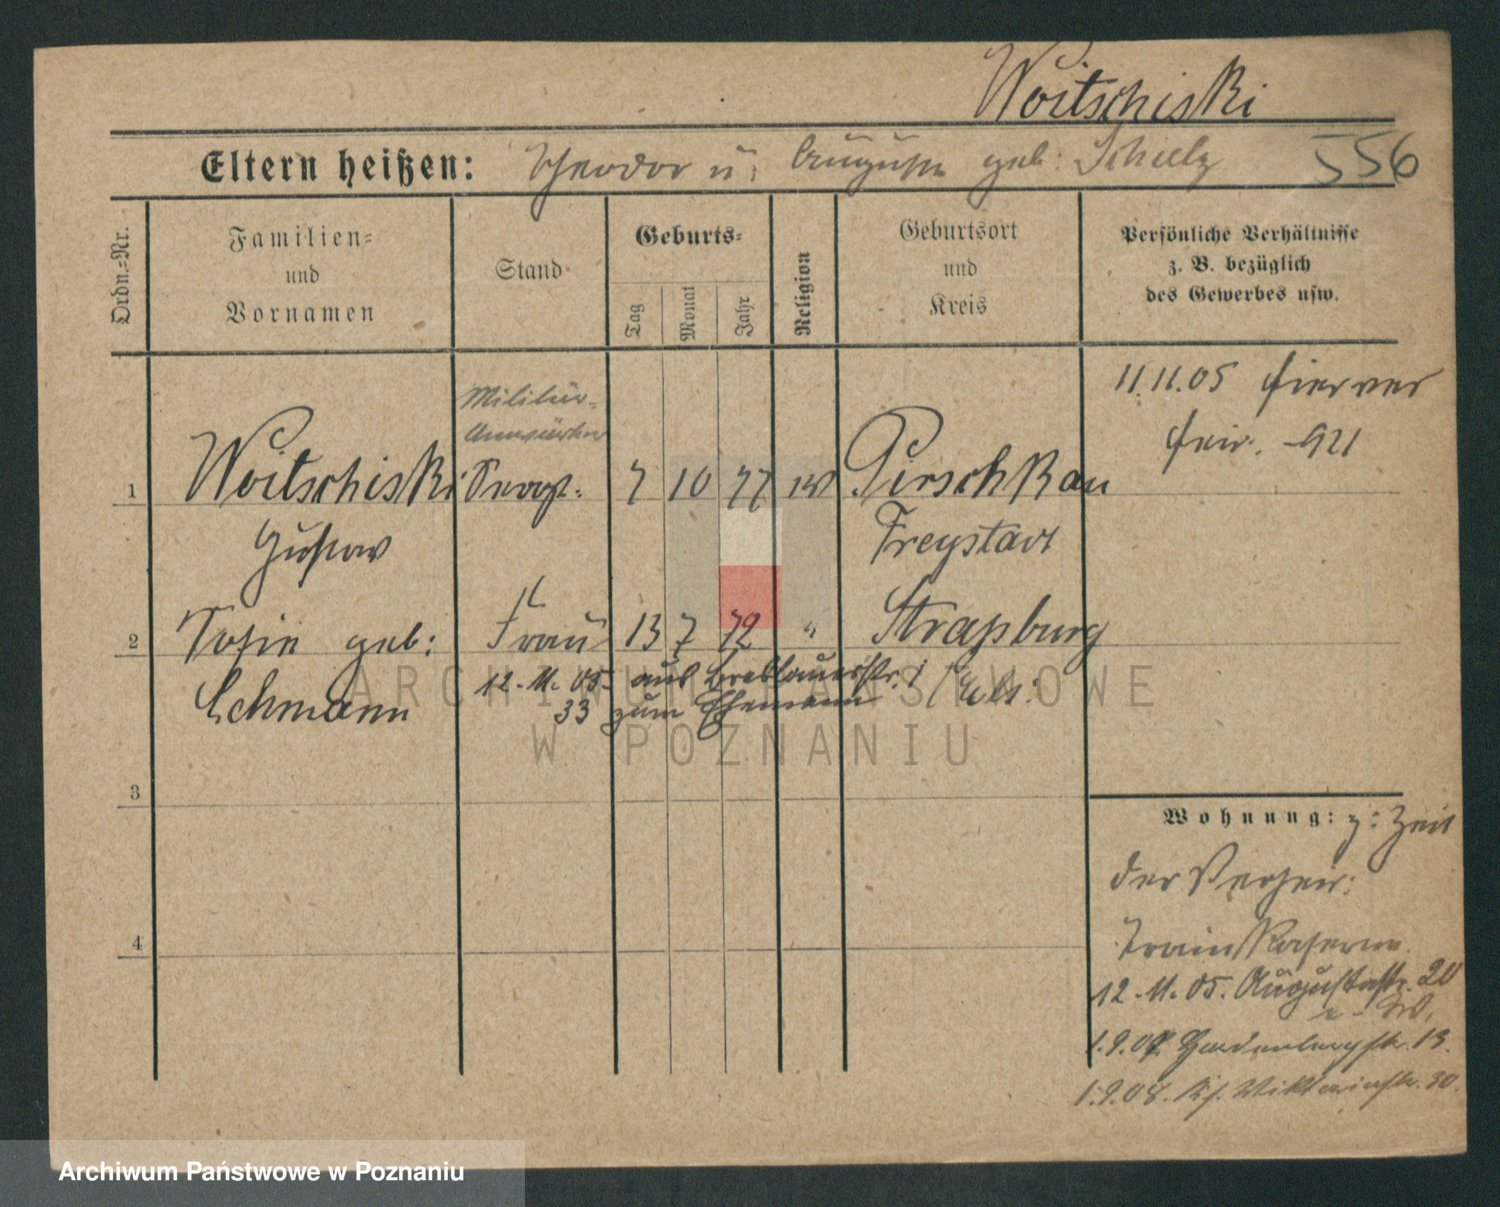 Woitschiski
Eltern heißen: Theodor u. Auguste geb. Schulz 556
Ordn.-Nr.
Familien-
und
Vornamen
Stand
Geburts-
Tag
Monat
Jahr
Religion
Geburtsort
und
Kreis
Persönliche Verhältnisse
z. B. bezüglich
des Gewerbes usw.
11.11.05 hier ver
heir. 921
Militär-
Anwärter
1 Woitschiski Sergt. 7 10 77 Pirschkau
Gustav Freystadt
2 Sofie geb: Frau 13 7 72 " Straßburg
Lehmann 12.11.05 aus Breslauerstr.
33 zum Ehemann / Els:
3
Wohnung: z: Zeit
der Verheir:
Trainkaserne
4
12.11.05. Augustastr. 20
1.9.07. Hardenbergstr. 13.
1.9.08. Viktoriastr. 30.
ARCHIWUM PAŃSTWOWE
W POZNANIU
Archiwum Państwowe w Poznaniu